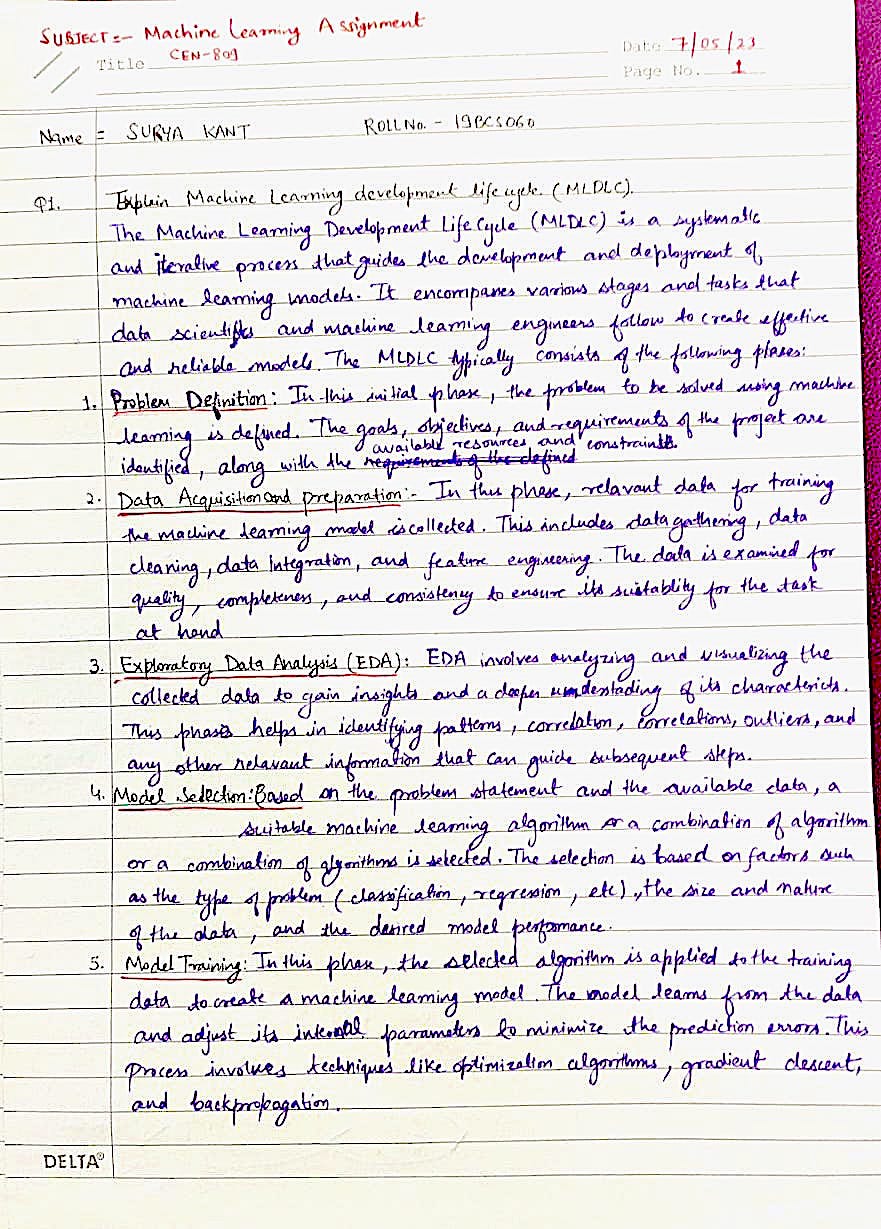 SUBJECT:- Machine Learning Assignment
Title CEN-809
Date 7/05/23
Page No. 1
Name = SURYA KANT ROLL No. - 19BCS060
Q1. Explain Machine Learning development life cycle (MLDLC).
The Machine Learning Development Life Cycle (MLDLC) is a systematic
and iterative process that guides the development and deployment of
machine learning models. It encompasses various stages and tasks that
data scientists and machine learning engineers follow to create effective
and reliable models. The MLDLC typically consists of the following phases:
1. Problem Definition: In this initial phase, the problem to be solved using machine
learning is defined. The goals, objectives, and requirements of the project are
available resources and constraints.
identified, along with the requirements of the defined
2. Data Acquisition and preparation:- In this phase, relavant data for training
the machine learning model is collected. This includes data gathering, data
cleaning, data Integration, and feature engineering. The data is examined for
quality, completeness, and consistency to ensure its suistablity for the task
at hand
3. Exploratory Data Analysis (EDA): EDA involves analyzing and visualizing the
collected data to gain insights and a deeper understading of its charactericts.
This phase helps in identifying patterns, correlation, correlations, outliers, and
any other relavant information that can guide subsequent steps.
4. Model Selection: Based on the problem statement and the available data, a
suitable machine learning algorithm or a combination of algorithm
or a combination of algorithms is selected. The selection is based on factors such
as the type of problem (classification, regression, etc), the size and nature
of the data, and the desired model performance.
5. Model Training: In this phase, the selected algorithm is applied to the training
data to create a machine learning model. The model learns from the data
and adjust its internal parameters to minimize the prediction errors. This
process involves techniques like optimization algorithms, gradient descent,
and backpropagation.
DELTA®